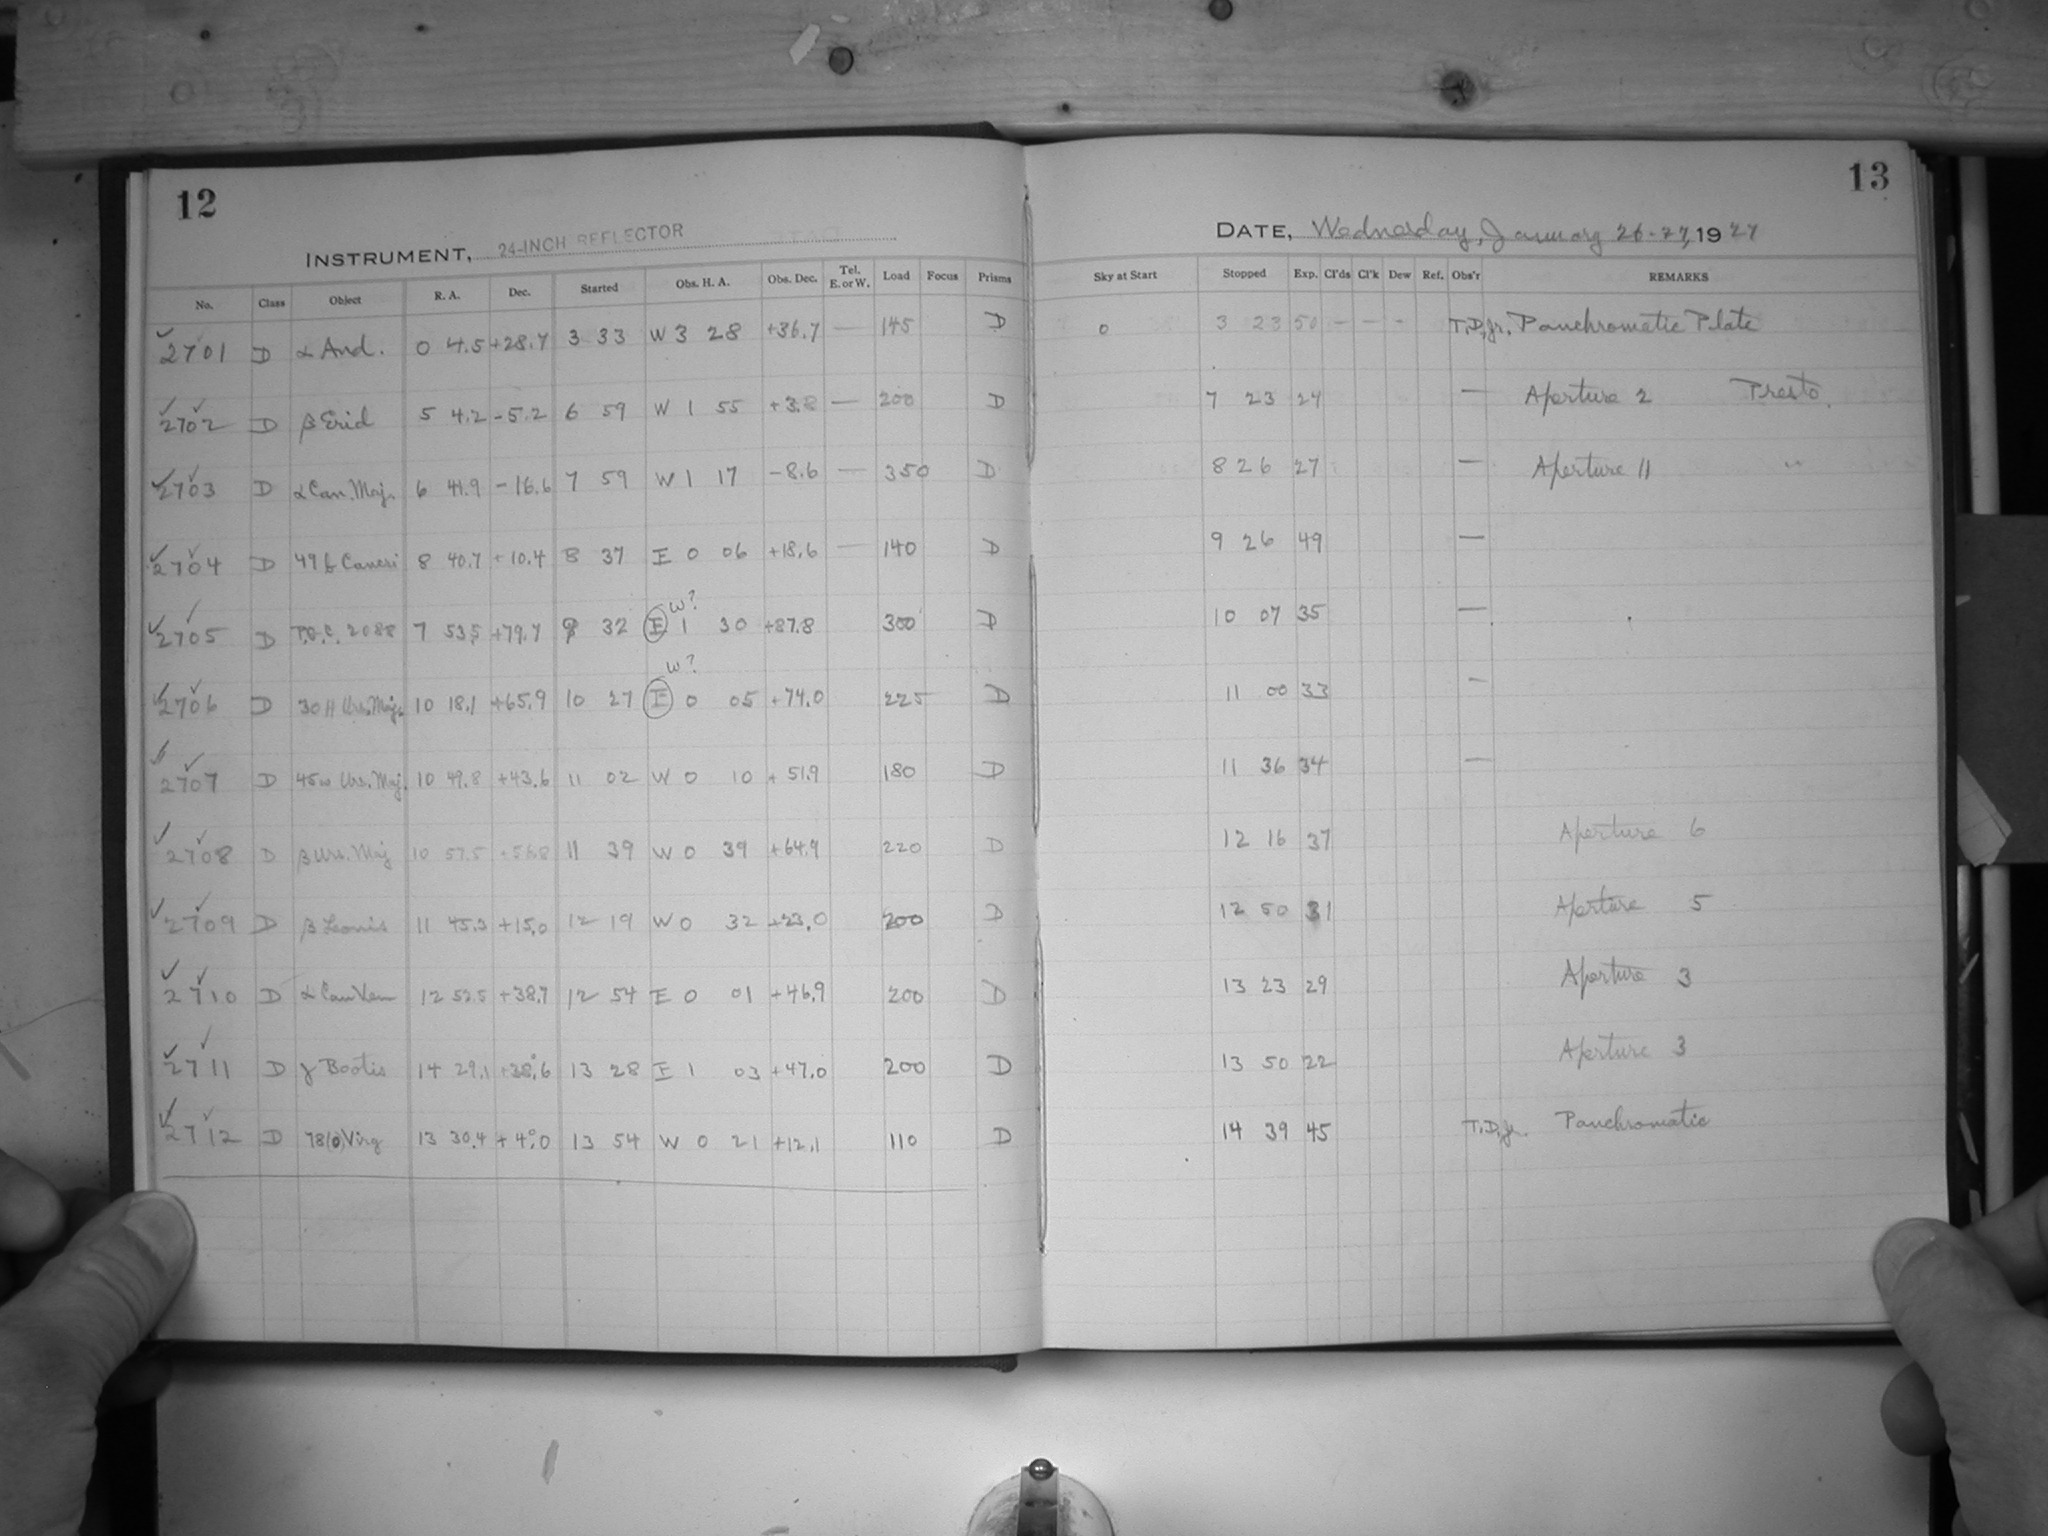 12
INSTRUMENT, 24-INCH REFLECTOR
No. Class Object R. A. Dec. Started Obs. H. A. Obs. Dec. Tel. E. or W. Load Focus Prisms
2701 D α And. 0 4.5 +28.7 3 33 W 3 28 +36.7 — 145 D
2702 D β Erid 5 4.2 -5.2 6 59 W 1 55 +3.8 — 200 D
2703 D α Can. Maj. 6 41.9 -16.6 7 59 W 1 17 -8.6 — 350 D
2704 D 49 b Cancri 8 40.7 +10.4 8 37 E 0 06 +18.6 — 140 D
W?
2705 D 2088 7 53.5 +79.7 9 32 E 1 30 +87.8 300 D
W?
2706 D 30 H Urs. Maj. 10 18.1 +65.9 10 27 E 0 05 +74.0 225 D
2707 D 45 ω Urs. Maj. 10 49.8 +43.6 11 02 W 0 10 +51.9 180 D
2708 D β Urs. Maj 10 57.5 +56.8 11 39 W 0 39 +64.9 220 D
2709 D β Leonis 11 45.3 +15.0 12 19 W 0 32 +23.0 200 D
2710 D α Can Ven 12 52.5 +38.7 12 54 E 0 01 +46.9 200 D
2711 D γ Bootis 14 29.1 +38.6 13 28 E 1 03 +47.0 200 D
2712 D 78(o) Virg 13 30.4 +4.0 13 54 W 0 21 +12.1 110 D
13
DATE, Wednesday, January 26-27, 1927
Sky at Start Stopped Exp. Cl'ds Cl'k Dew Ref. Obs'r REMARKS
0 3 23 50 — — - T.D.Jr. Panchromatic Plate
7 23 24 — Aperture 2 Presto.
8 26 27 — Aperture 11 "
9 26 49 —
10 07 35 —
11 00 33 —
11 36 34 —
12 16 37 Aperture 6
12 50 31 Aperture 5
13 23 29 Aperture 3
13 50 22 Aperture 3
14 39 45 T.D.Jr. Panchromatic